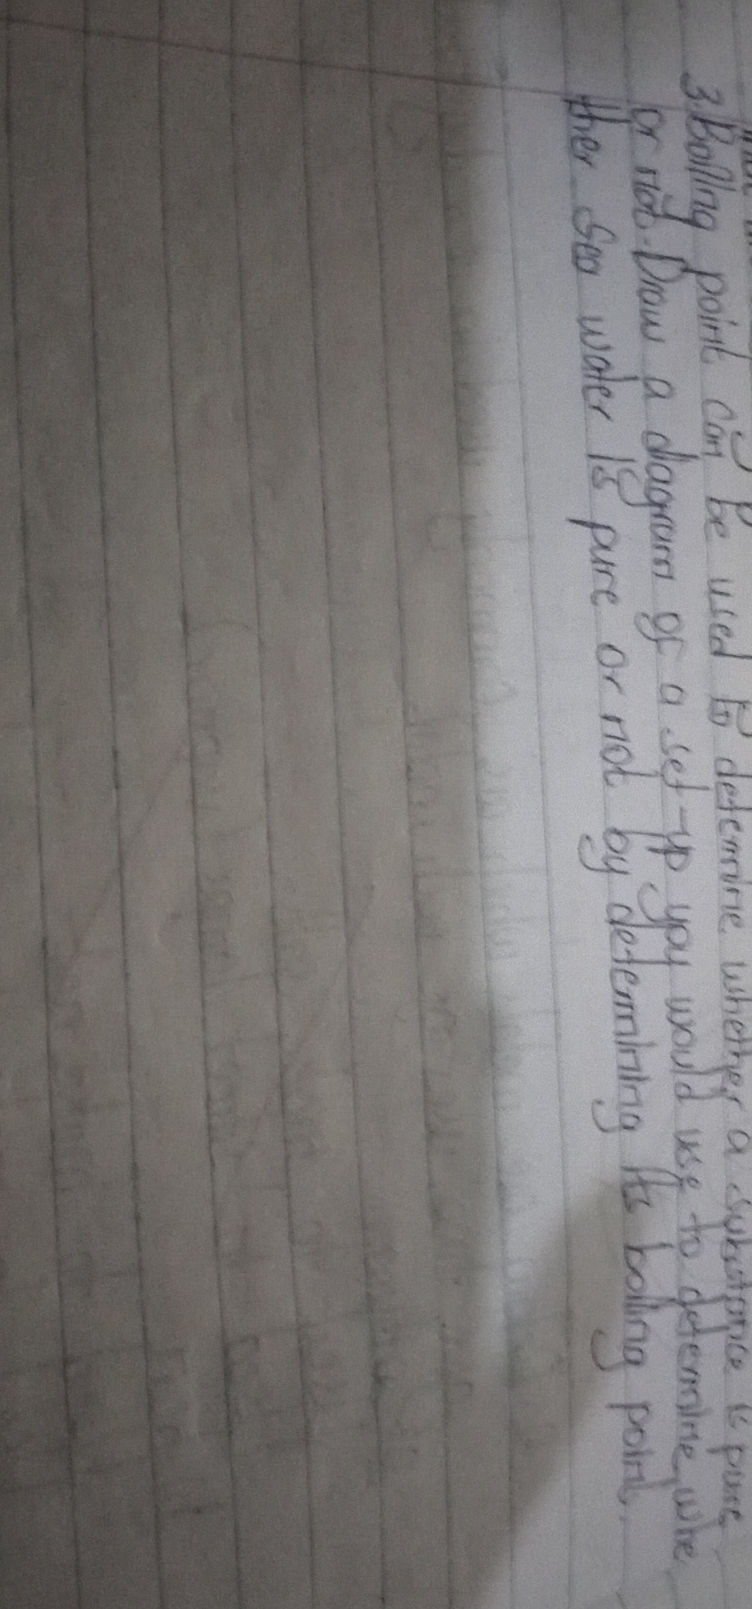 3. Boiling point can be used to determine whether a substance is pure
or not. Draw a diagram of a set-up you would use to determine whe
ther sea water is pure or not by determining its boiling point.